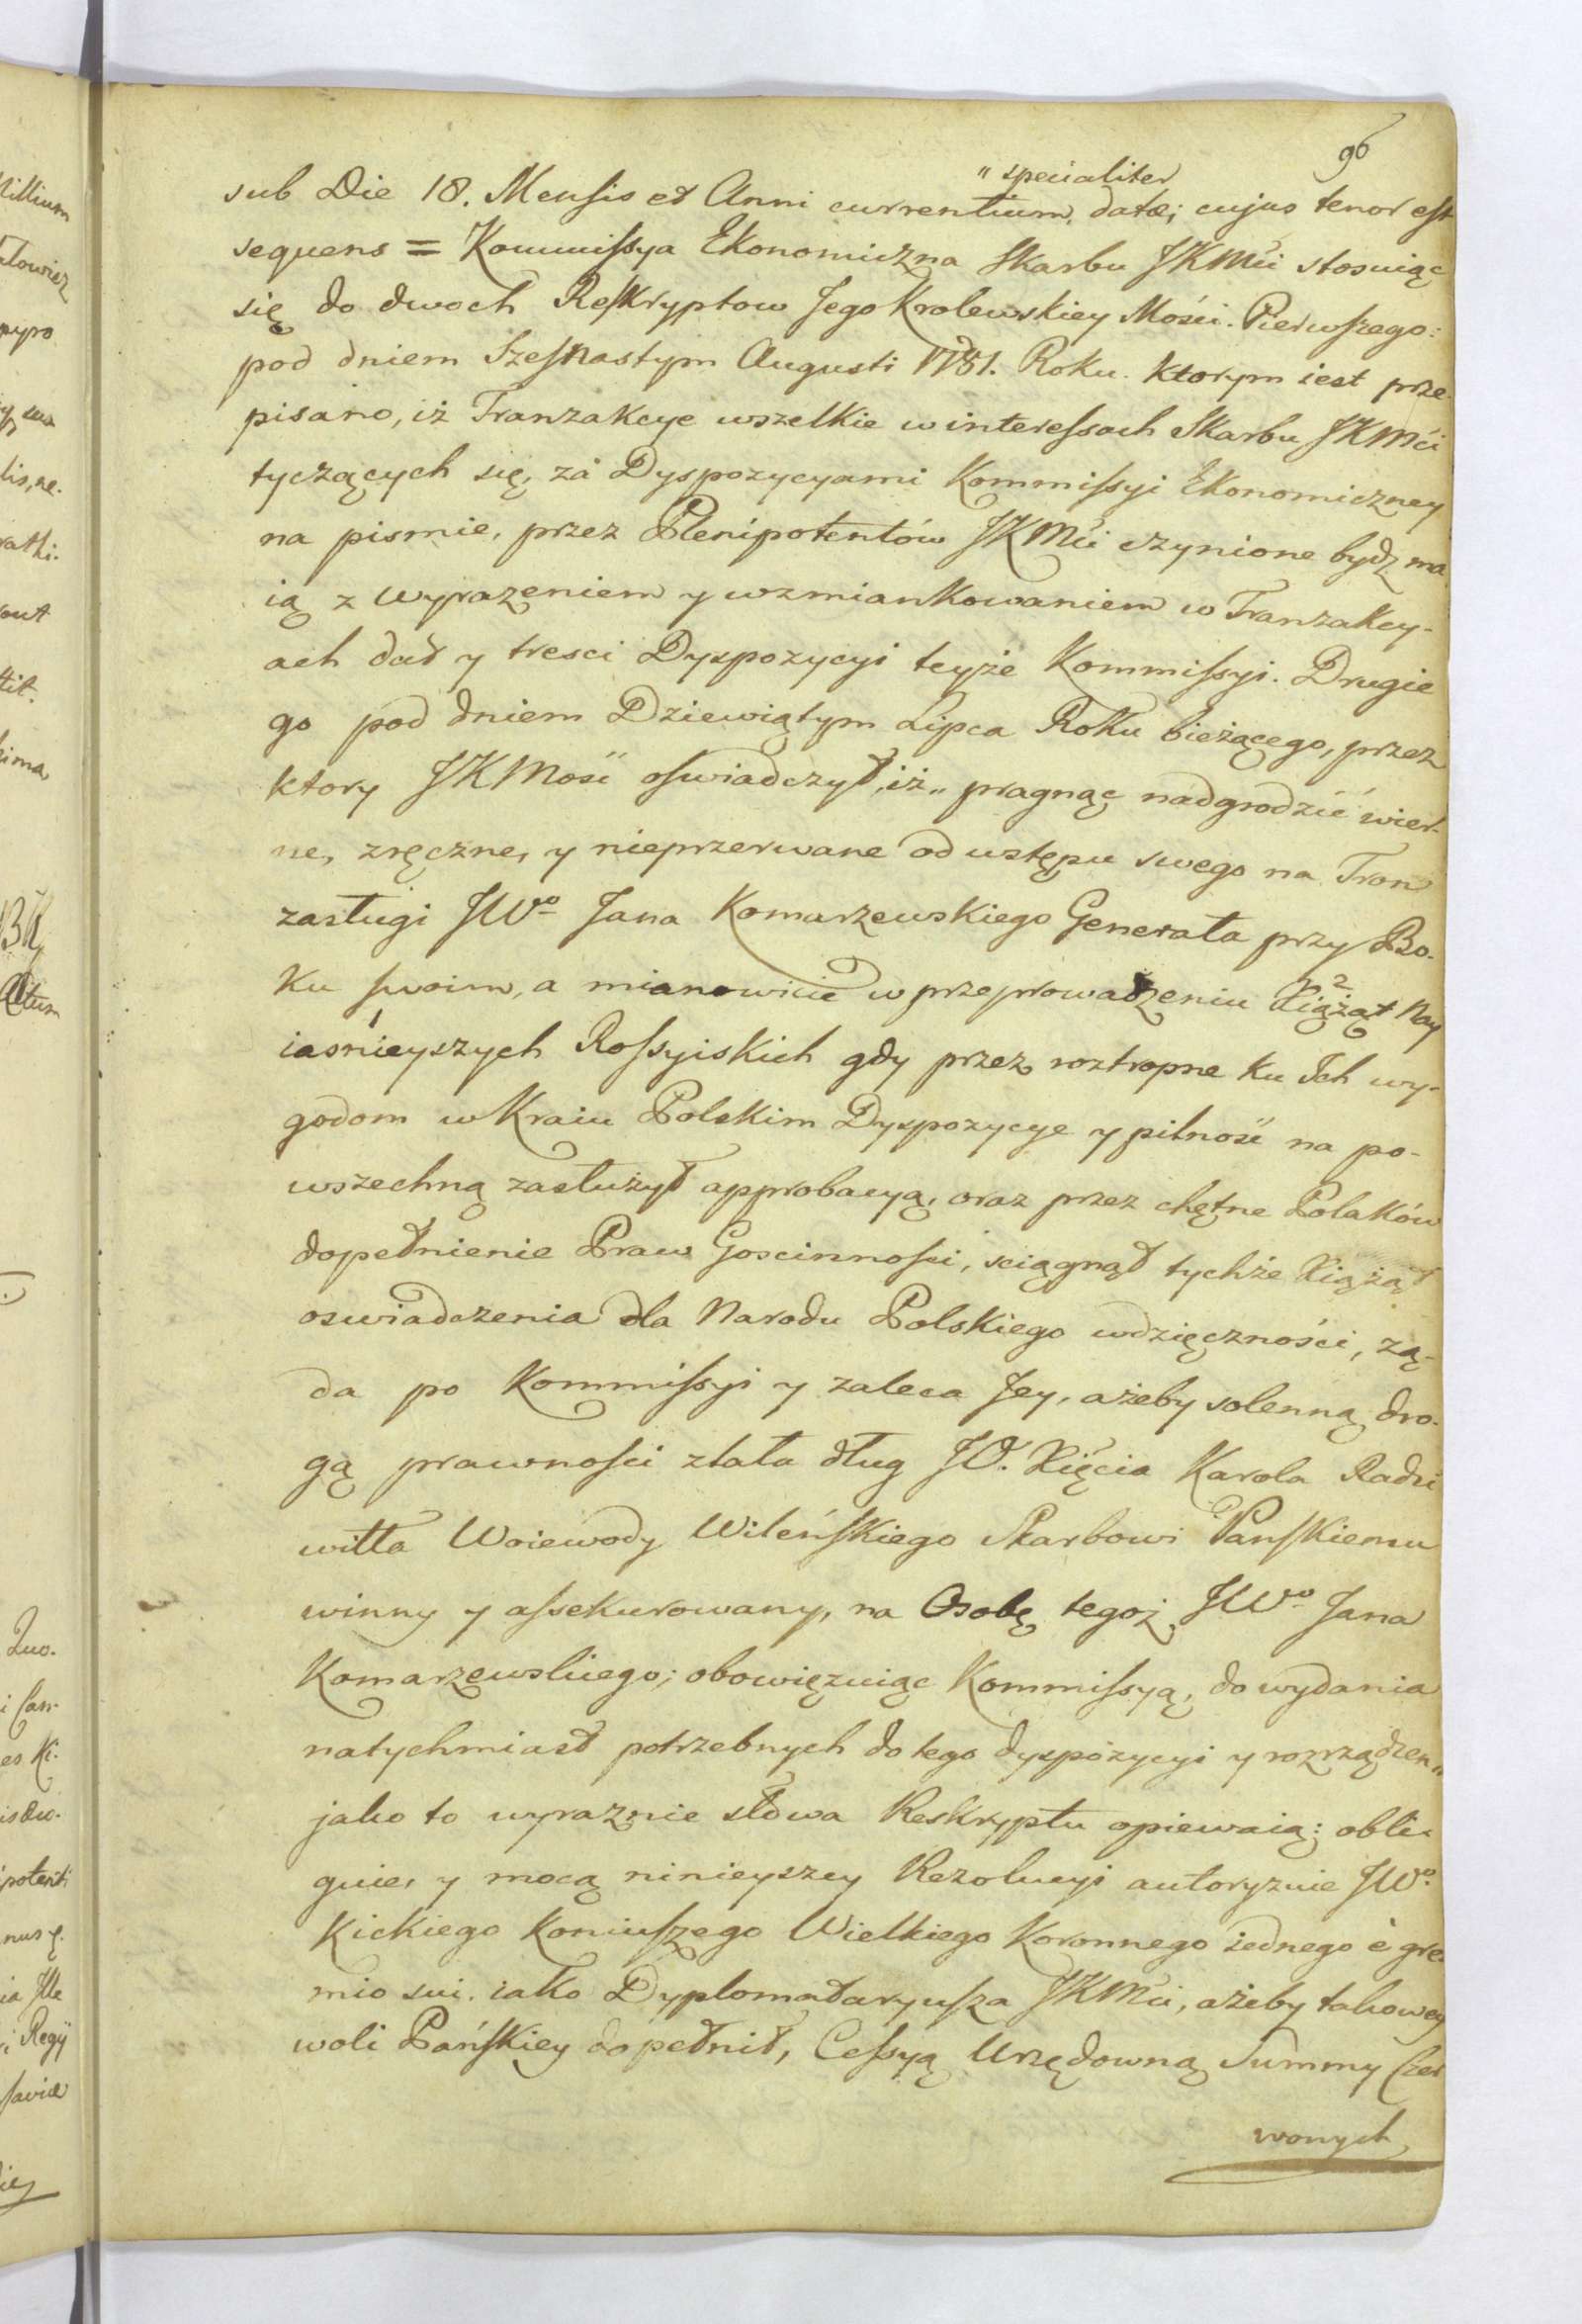 96
sub Die 18. Mensis et Anni currentium " specialiter datæ; cujus tenor est
sequens = Kommissya Ekonomiczna Skarbu JKMći stosuiąc
się do dwoch Reskryptow Jego Krolewskiey Mości. Pierwszego:
pod dniem Szesnastym Augusti 1781. Roku. Ktorym iest prze
pisano, iż Tranzakcye wszelkie w interessach Skarbu JKMći
tyczących się, za Dyspozycyami Kommissyi Ekonomiczney
na pismie, przez Plenipotentów JKMći czynione bydz ma
ią z wyrazeniem y wzmiankowaniem w Tranzakcy-
ach dat y tresci Dyspozycyi teyże Kommissyi. Drugie
go pod dniem Dziewiątym Lipca Roku bieżącego, przez
ktory JKMość oswiadczył, iż „ pragnąc nadgrodzić wier-
ne, zręczne, y nieprzerwane od wstępu swego na Tron
zasługi JWo Jana Komarzewskiego Generała przy Bo-
ku swoim, a mianowicie w przeprowadzeniu Xiążąt Nay
iaśnieyszych Rossyiskich gdy przez roztropne ku Ich wy-
godom w Kraiu Polskim Dyspozycye y pilność na po-
wszechną zasłużył approbacyą, oraz przez chętne Polaków
dopełnienie Praw Goscinności, sciągnął tychże Xiążąt
oswiadczenia dla Narodu Polskiego wdzięczności, żą-
da po Kommissyi y zaleca Jey, ażeby solenną dro-
gą prawności zlała dług JO. Xięcia Karola Radzi
wiłła Woiewody Wileńskiego Skarbowi Panskiemu
winny y assekurowany, na Osobę tegoż JWo Jana
Komarzewskiego; obowięzuiąc Kommissyą, do wydania
natychmiast potrzebnych do tego dyspozycyi y rozrządzen„
jako to wyraznie słowa Reskryptu opiewaią: obli-
guie, y mocą ninieyszey Rezolucyi autoryzuie JWo
Kickiego Koniuszego Wielkiego Koronnego iednego è gre
mio sui. iako Dyplomataryusza JKMći, ażeby takowey
woli Pańskiey dopełnił, Cessyą Urzędowną Summy Czer
wonych